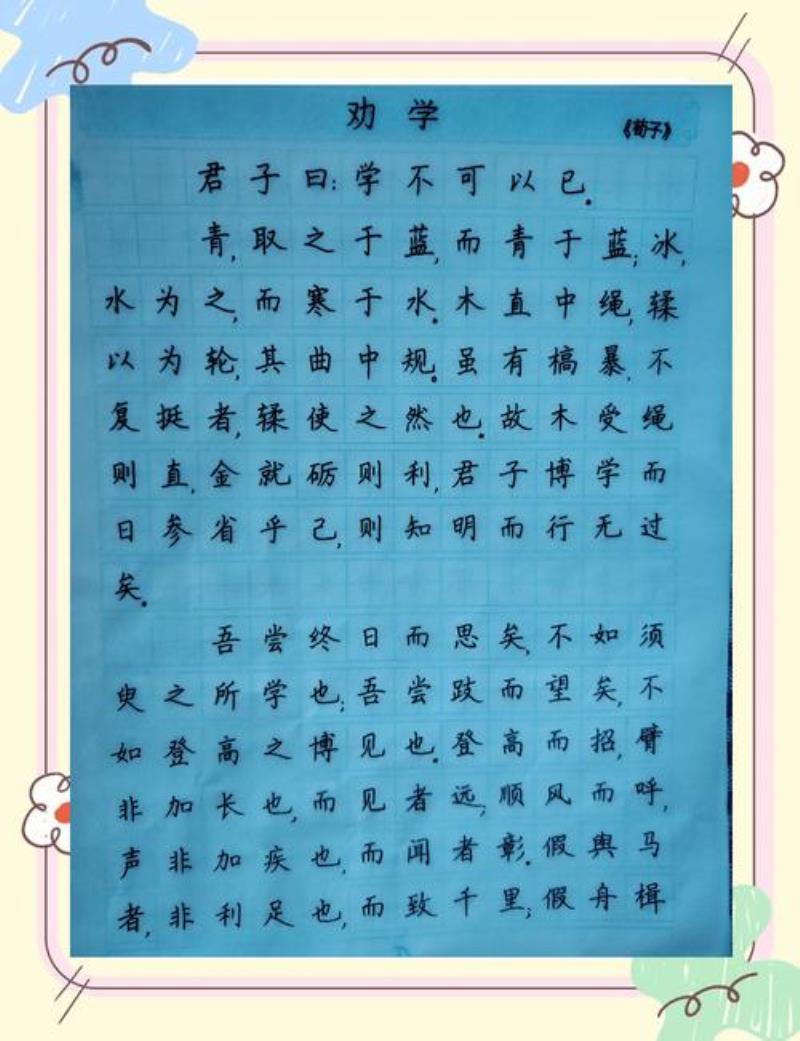 劝学
《荀子》
君子曰:学不可以已.
青,取之于蓝,而青于蓝;冰,
水为之,而寒于水.木直中绳,𫐓
以为轮,其曲中规.虽有槁暴,不
复挺者,𫐓使之然也.故木受绳
则直,金就砺则利,君子博学而
日参省乎己,则知明而行无过
矣.
吾尝终日而思矣,不如须
臾之所学也;吾尝跂而望矣,不
如登高之博见也.登高而招,臂
非加长也,而见者远;顺风而呼,
声非加疾也,而闻者彰.假舆马
者,非利足也,而致千里;假舟楫